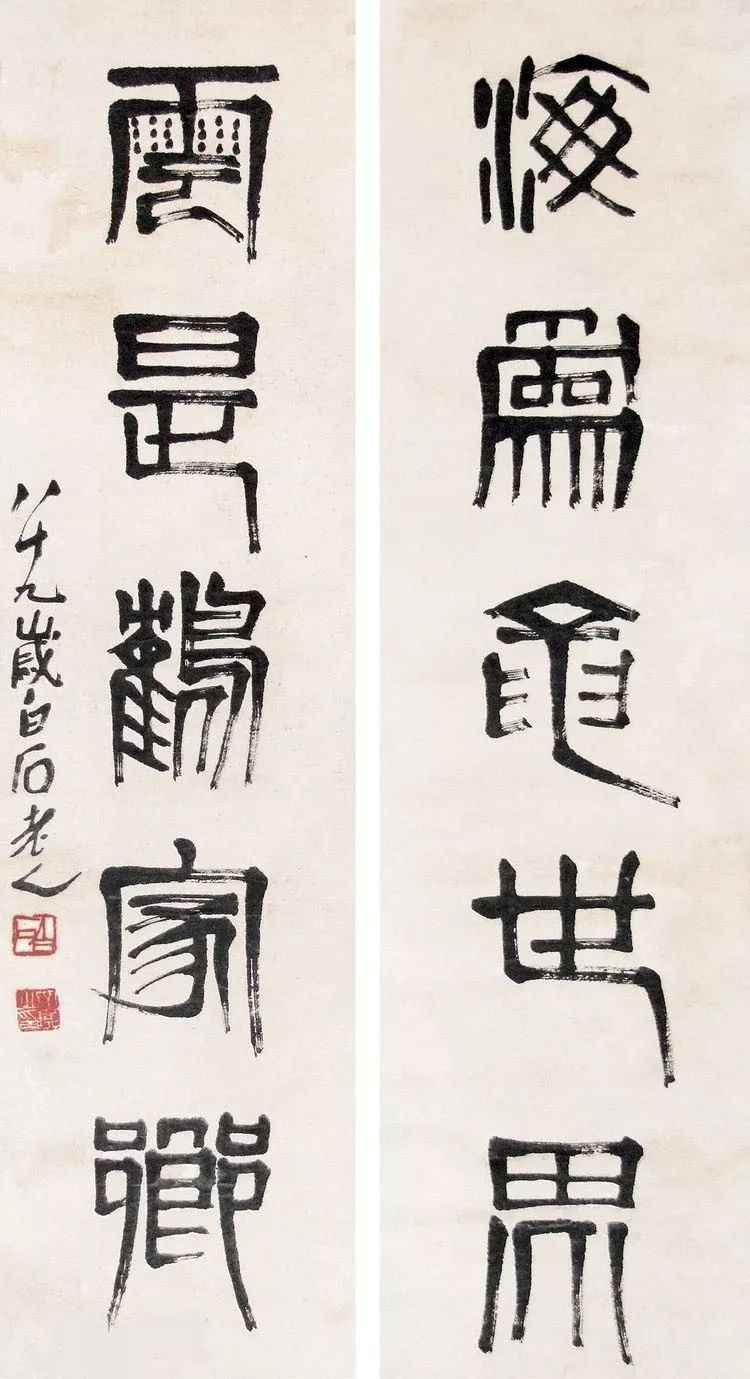 海為龜世界
雲是鶴家鄉
八十九歲白石老人